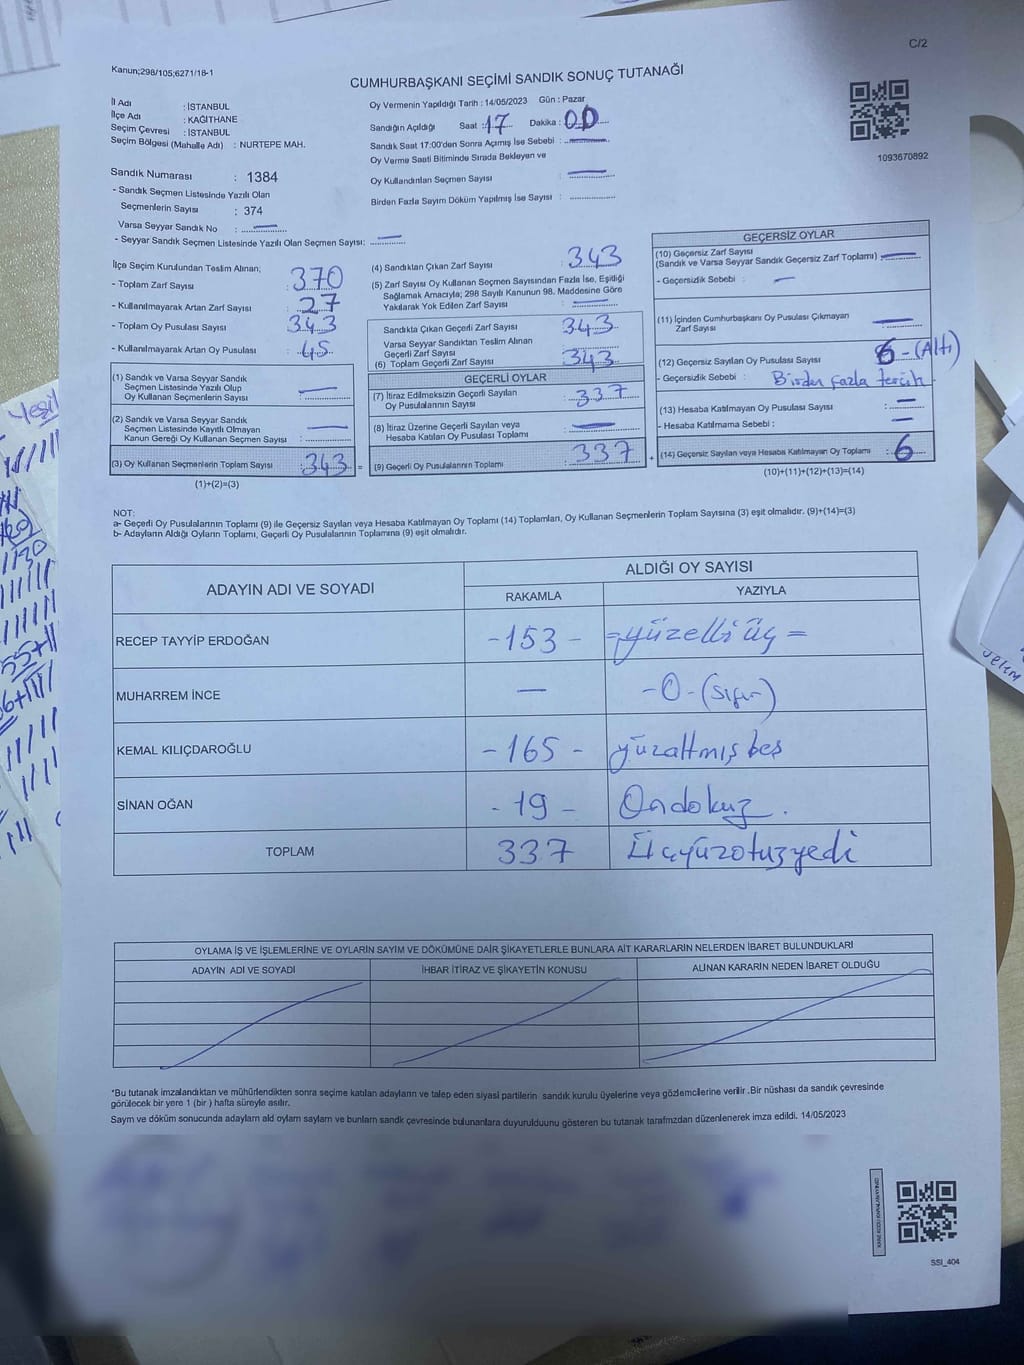 C/2
Kanun;298/105;6271/18-1
CUMHURBAŞKANI SEÇİMİ SANDIK SONUÇ TUTANAĞI
İl Adı : İSTANBUL
İlçe Adı : KAĞITHANE
Seçim Çevresi : İSTANBUL
Seçim Bölgesi (Mahalle Adı) : NURTEPE MAH.
Oy Vermenin Yapıldığı Tarih : 14/05/2023 Gün : Pazar
Sandığın Açıldığı Saat : 17 Dakika : 00
Sandık Saat 17:00'den Sonra Açmış İse Sebebi : —
Oy Verme Saati Bitiminde Sırada Bekleyen ve
Oy Kullandırılan Seçmen Sayısı : —
Birden Fazla Sayım Döküm Yapılmış İse Sayısı :
1093670892
Sandık Numarası : 1384
- Sandık Seçmen Listesinde Yazılı Olan
Seçmenlerin Sayısı : 374
Varsa Seyyar Sandık No : —
- Seyyar Sandık Seçmen Listesinde Yazılı Olan Seçmen Sayısı: —
İlçe Seçim Kurulundan Teslim Alınan;
- Toplam Zarf Sayısı : 370
- Kullanılmayarak Artan Zarf Sayısı : 27
- Toplam Oy Pusulası Sayısı : 343
- Kullanılmayarak Artan Oy Pusulası : 45
(1) Sandık ve Varsa Seyyar Sandık
Seçmen Listesinde Yazılı Olup
Oy Kullanan Seçmenlerin Sayısı : —
(2) Sandık ve Varsa Seyyar Sandık
Seçmen Listesinde Kayıtlı Olmayan
Kanun Gereği Oy Kullanan Seçmen Sayısı : —
(3) Oy Kullanan Seçmenlerin Toplam Sayısı : 343 =
(1)+(2)=(3)
(4) Sandıktan Çıkan Zarf Sayısı : 343
(5) Zarf Sayısı Oy Kullanan Seçmen Sayısından Fazla İse, Eşitliği
Sağlamak Amacıyla; 298 Sayılı Kanunun 98. Maddesine Göre
Yakılarak Yok Edilen Zarf Sayısı : —
Sandıkla Çıkan Geçerli Zarf Sayısı : 343
Varsa Seyyar Sandıktan Teslim Alınan
Geçerli Zarf Sayısı
(6) Toplam Geçerli Zarf Sayısı : 343
GEÇERLİ OYLAR
(7) İtiraz Edilmeksizin Geçerli Sayılan
Oy Pusulalarının Sayısı : 337
(8) İtiraz Üzerine Geçerli Sayılan veya
Hesaba Katılan Oy Pusulası Toplamı : —
(9) Geçerli Oy Pusulalarının Toplamı : 337 +
GEÇERSİZ OYLAR
(10) Geçersiz Zarf Sayısı
(Sandık ve Varsa Seyyar Sandık Geçersiz Zarf Toplamı) : —
- Geçersizlik Sebebi : —
(11) İçinden Cumhurbaşkanı Oy Pusulası Çıkmayan
Zarf Sayısı : —
(12) Geçersiz Sayılan Oy Pusulası Sayısı : 6-(Altı)
- Geçersizlik Sebebi : Birden fazla tercih
(13) Hesaba Katılmayan Oy Pusulası Sayısı : —
- Hesaba Katılmama Sebebi : —
(14) Geçersiz Sayılan veya Hesaba Katılmayan Oy Toplamı : 6
(10)+(11)+(12)+(13)=(14)
NOT:
a- Geçerli Oy Pusulalarının Toplamı (9) ile Geçersiz Sayılan veya Hesaba Katılmayan Oy Toplamı (14) Toplamları, Oy Kullanan Seçmenlerin Toplam Sayısına (3) eşit olmalıdır. (9)+(14)=(3)
b- Adayların Aldığı Oyların Toplamı, Geçerli Oy Pusulalarının Toplamına (9) eşit olmalıdır.
ADAYIN ADI VE SOYADI
ALDIĞI OY SAYISI
RAKAMLA YAZIYLA
RECEP TAYYİP ERDOĞAN -153- =yüzelliüç=
MUHARREM İNCE — -0-(sıfır)
KEMAL KILIÇDAROĞLU -165- yüzaltmışbeş
SİNAN OĞAN -19- Ondokuz.
TOPLAM 337 Üçyüzotuzyedi
OYLAMA İŞ VE İŞLEMLERİNE VE OYLARIN SAYIM VE DÖKÜMÜNE DAİR ŞİKAYETLERLE BUNLARA AİT KARARLARIN NELERDEN İBARET BULUNDUKLARI
ADAYIN ADI VE SOYADI İHBAR İTİRAZ VE ŞİKAYETİN KONUSU ALINAN KARARIN NEDEN İBARET OLDUĞU
*Bu tutanak imzalandıktan ve mühürlendikten sonra seçime katılan adayların ve talep eden siyasi partilerin sandık kurulu üyelerine veya gözlemcilerine verilir .Bir nüshası da sandık çevresinde
görülecek bir yere 1 (bir ) hafta süreyle asılır.
Sayım ve döküm sonucunda adayların aldı oyların sayıları ve bunların sandık çevresinde bulunanlara duyurulduunu gösteren bu tutanak tarafımızdan düzenlenerek imza edildi. 14/05/2023
SSI_404